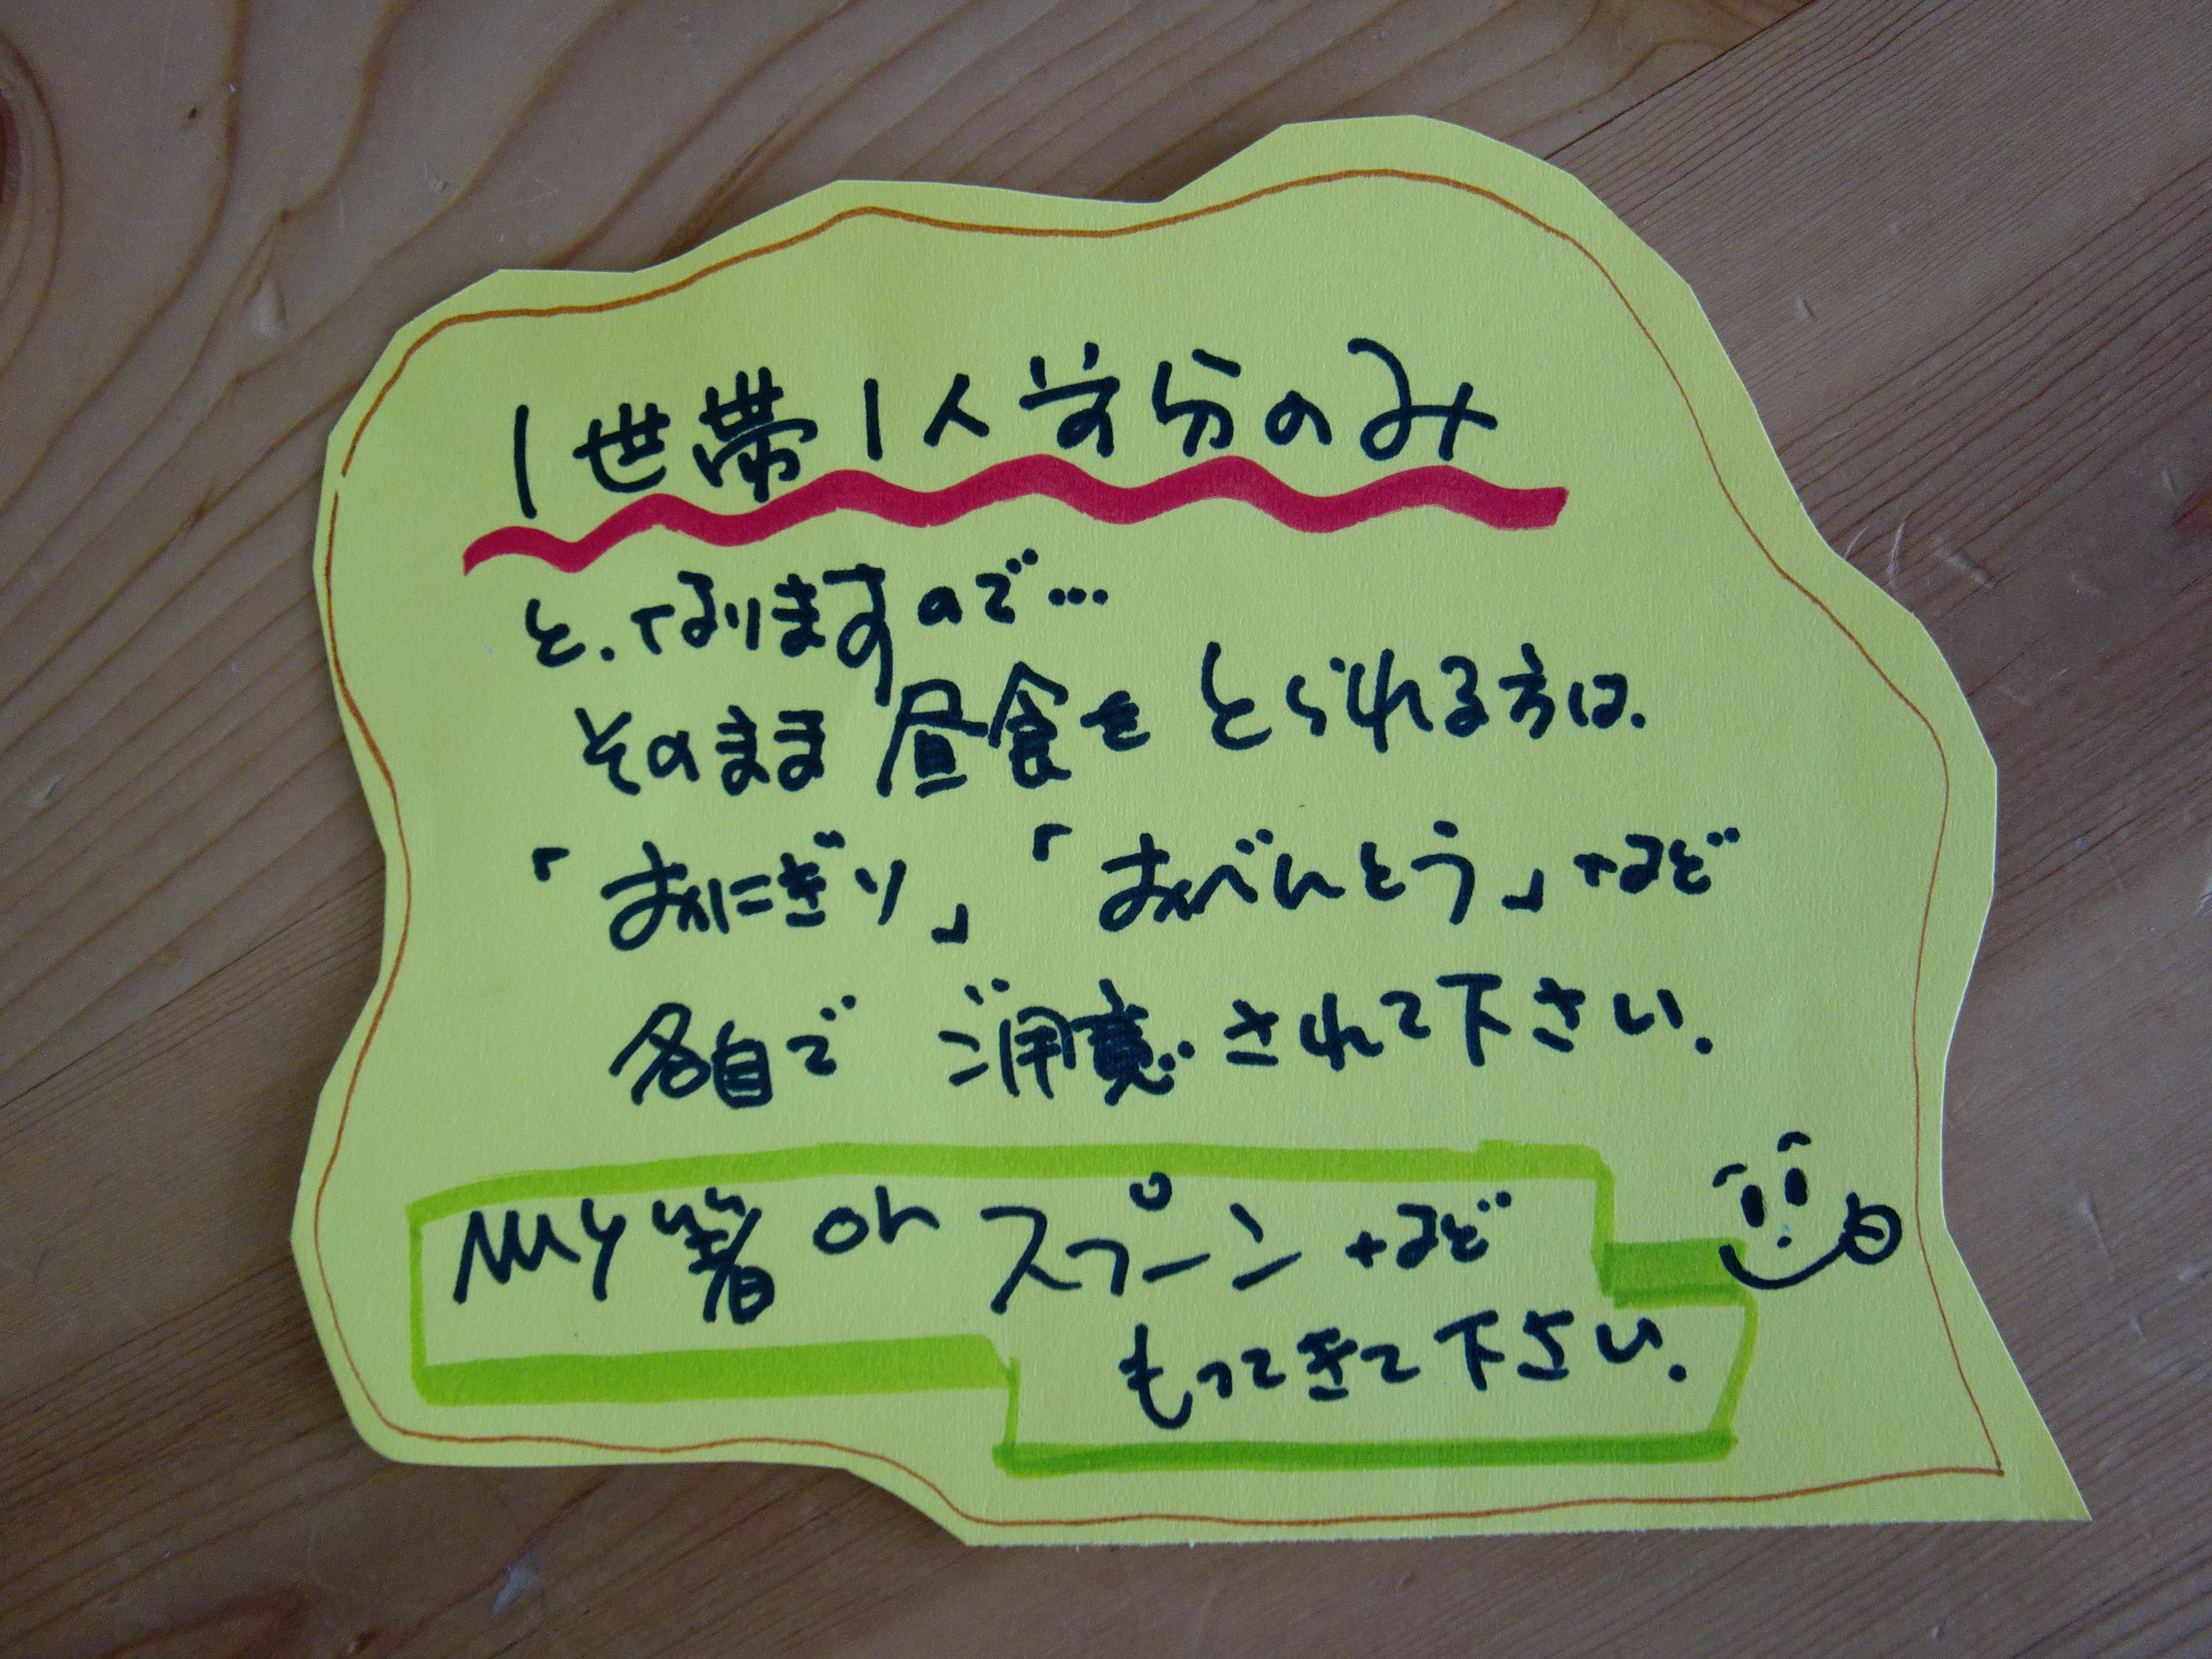 1世帯1人前分のみ
と、なりますので…
そのまま昼食をとられる方は、
「おにぎり」「おべんとう」など
各自でご用意されて下さい。
My箸 or スプーンなど
もってきて下さい。